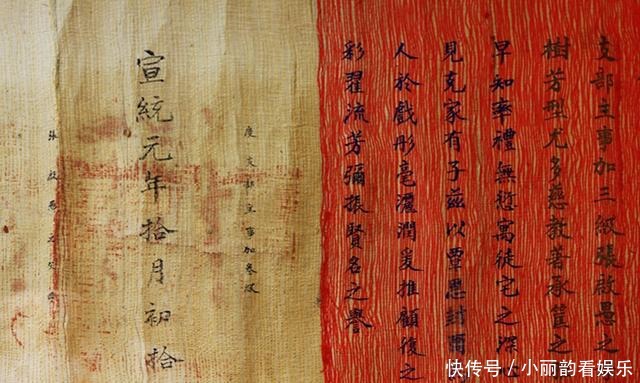 支部主事加三級張啟愚之
樹芳型尤多慈教著承筐之
早知率禮無愆寓徙宅之深
見克家有子茲以覃恩封爾
人於戲彤毫潤爰推顧復之
彩翟流芳彌振賢名之譽
度支部主事加叁級
宣統元年拾月初拾
張啟愚之
快传号 / 小丽韵看娱乐